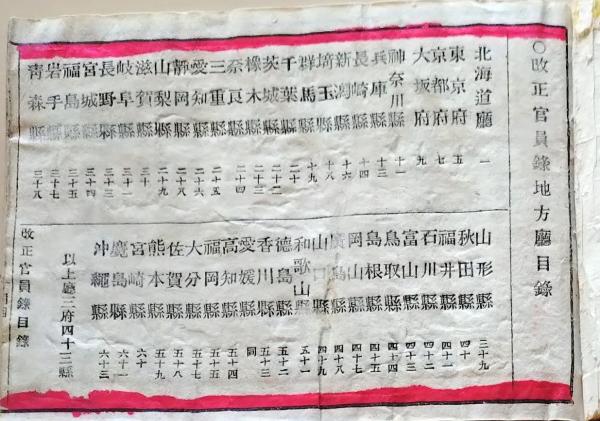 〇改正官員錄地方廳目錄
北海道廳 一
東京府 五
京都府 七
大坂府 九
神奈川縣 十一
兵庫縣 十三
長崎縣 十四
新潟縣 十六
埼玉縣 十八
群馬縣 十九
千葉縣 二十
茨城縣 二十二
橡木縣 二十三
奈良縣 二十四
三重縣 二十五
愛知縣 二十六
靜岡縣 二十八
山梨縣 二十九
滋賀縣 三十
岐阜縣
長野縣 三十三
宮城縣 三十四
福島縣 三十五
岩手縣 三十七
青森縣 三十八
山形縣 三十九
秋田縣 四十
福井縣 四十一
石川縣 四十二
富山縣 四十三
鳥取縣 四十四
島根縣 四十五
岡山縣 四十七
廣島縣 四十八
山口縣 四十九
和歌山縣 五十一
德島縣 五十二
香川縣 五十三
愛媛縣 同
高知縣 五十四
福岡縣 五十五
大分縣 五十七
佐賀縣 五十八
熊本縣 五十九
宮崎縣 六十
島縣 六十一
沖繩縣 六十三
以上廳三府四十三縣
改正官員錄目錄